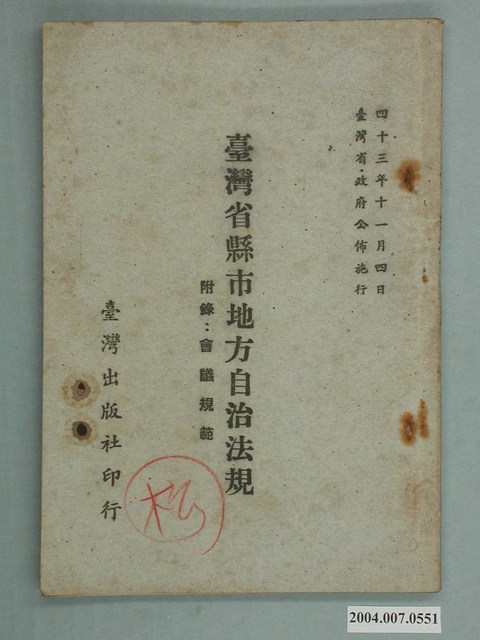 四十三年十一月四日
臺灣省政府公佈施行
臺灣省縣市地方自治法規
附錄：會議規範
臺灣出版社印行
松
2004.007.0551